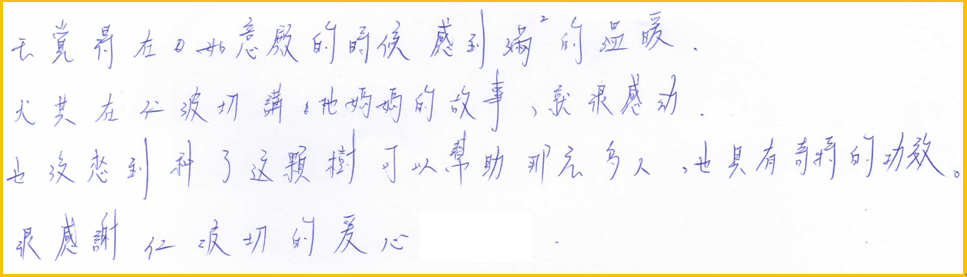 我覺得在如意殿的時候感到滿²的温暖.
尤其在仁波切講他媽媽的故事,就很感动.
也沒想到种了这顆樹可以幫助那么多人,也具有奇特的功效。
很感謝仁波切的爱心